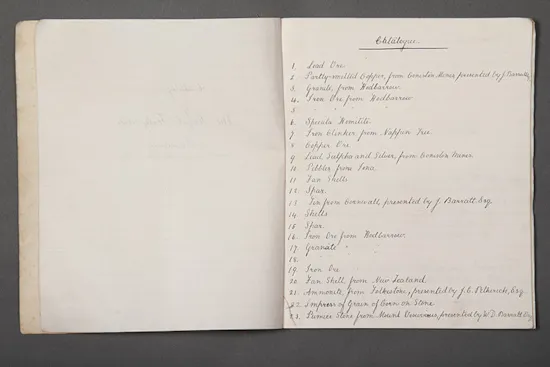 Catalogue.
1. Lead Ore.
2. Partly-smelted Copper, from Coniston Mines, presented by J. Barratt,
3. Granite, from Hodbarrow.
4. Iron Ore from Hodbarrow
5. " "
6. Specular Hematite.
7. Iron Clinker, from
8. Copper Ore
9. Lead, Sulphur and Silver, from Coniston Mines.
10. Pebbles from Iona.
11. Fan Shells
12. Spar.
13. Tin from Cornwall, presented by J. Barratt, Esq.
14. Shells
15. Spar.
16. Iron Ore from Hodbarrow.
17. Granite "
18.
19. Iron Ore
20. Fan Shell, from New Zealand.
21. Ammonite, from Folkestone, presented by J. C. Esq.
22. Impress of Grain of Corn on Stone
23. Pumice Stone from Mount Vesuvius, presented by W. D. Barratt Esq